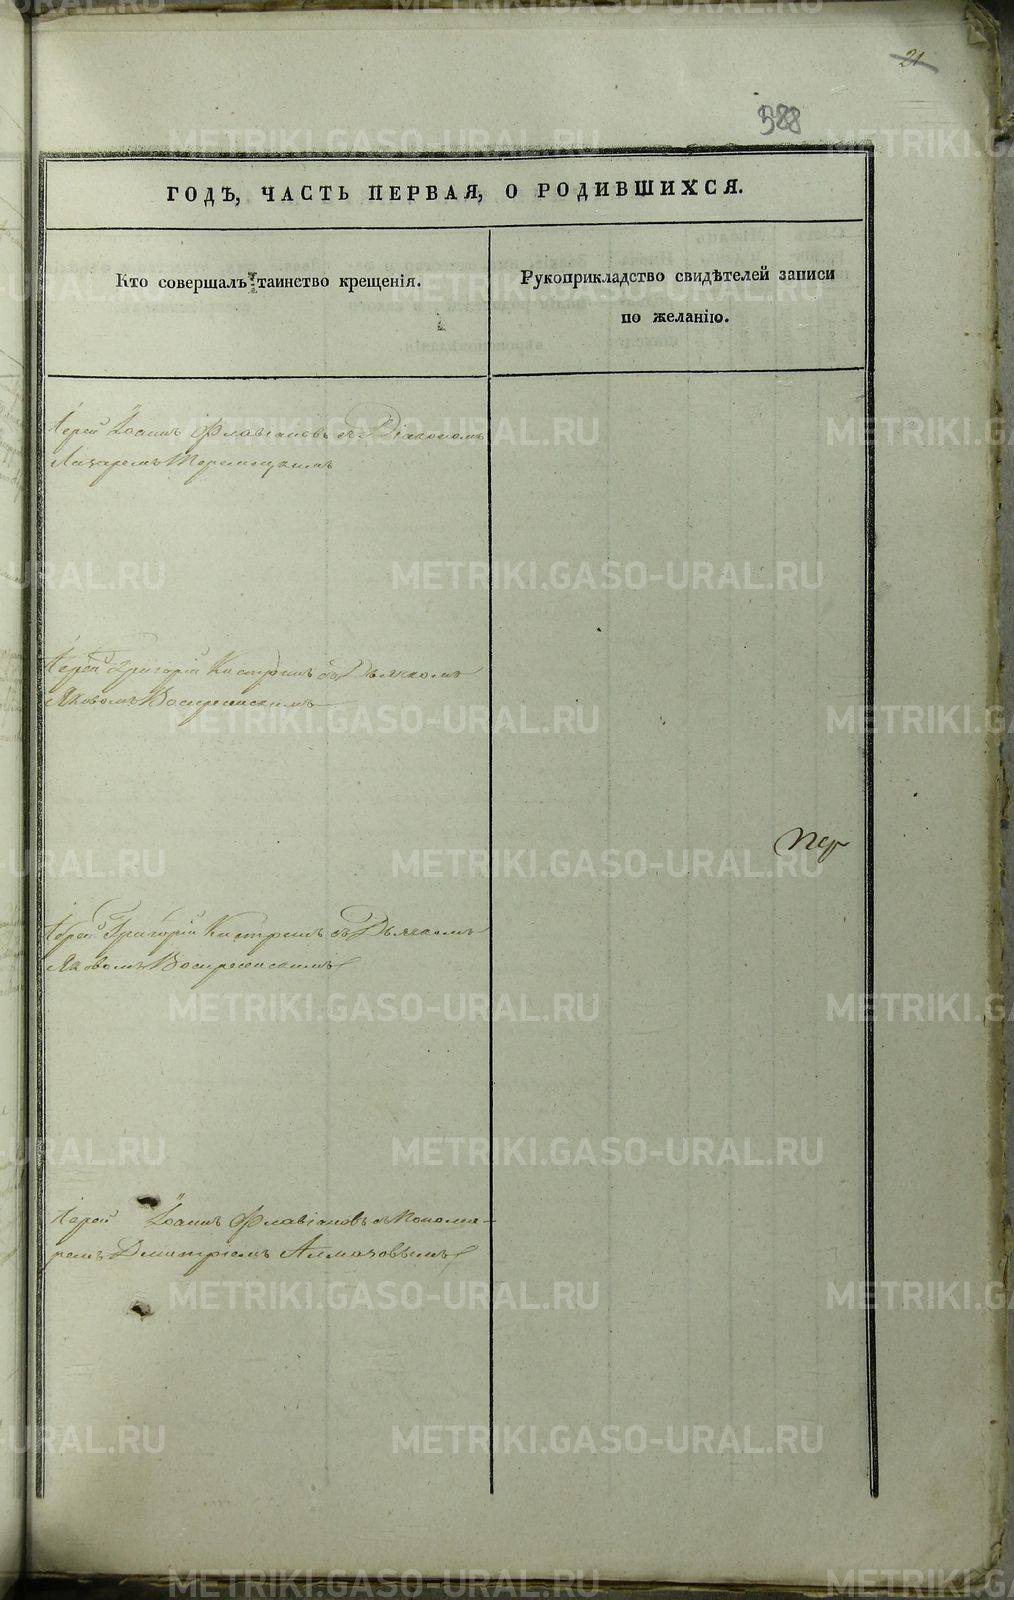 21
588
ГОДЪ, ЧАСТЬ ПЕРВАЯ, О РОДИВШИХСЯ.
Кто совершалъ таинство крещенія.
Рукоприкладство свидѣтелей записи
по желанію.
Іерей Іоаннъ Флавіановъ съ Діакономъ
Лазаремъ
Іерей Григорій Кастринъ съ Дьячкомъ
Яковомъ Воскресенскимъ
Іерей Григорій Кастринъ съ Дьячкомъ
Яковомъ Воскресенскимъ
Іерей Іоаннъ Флавіановъ съ Понома-
ремъ Дмитріемъ Алмазовымъ
METRIKI.GASO-URAL.RU